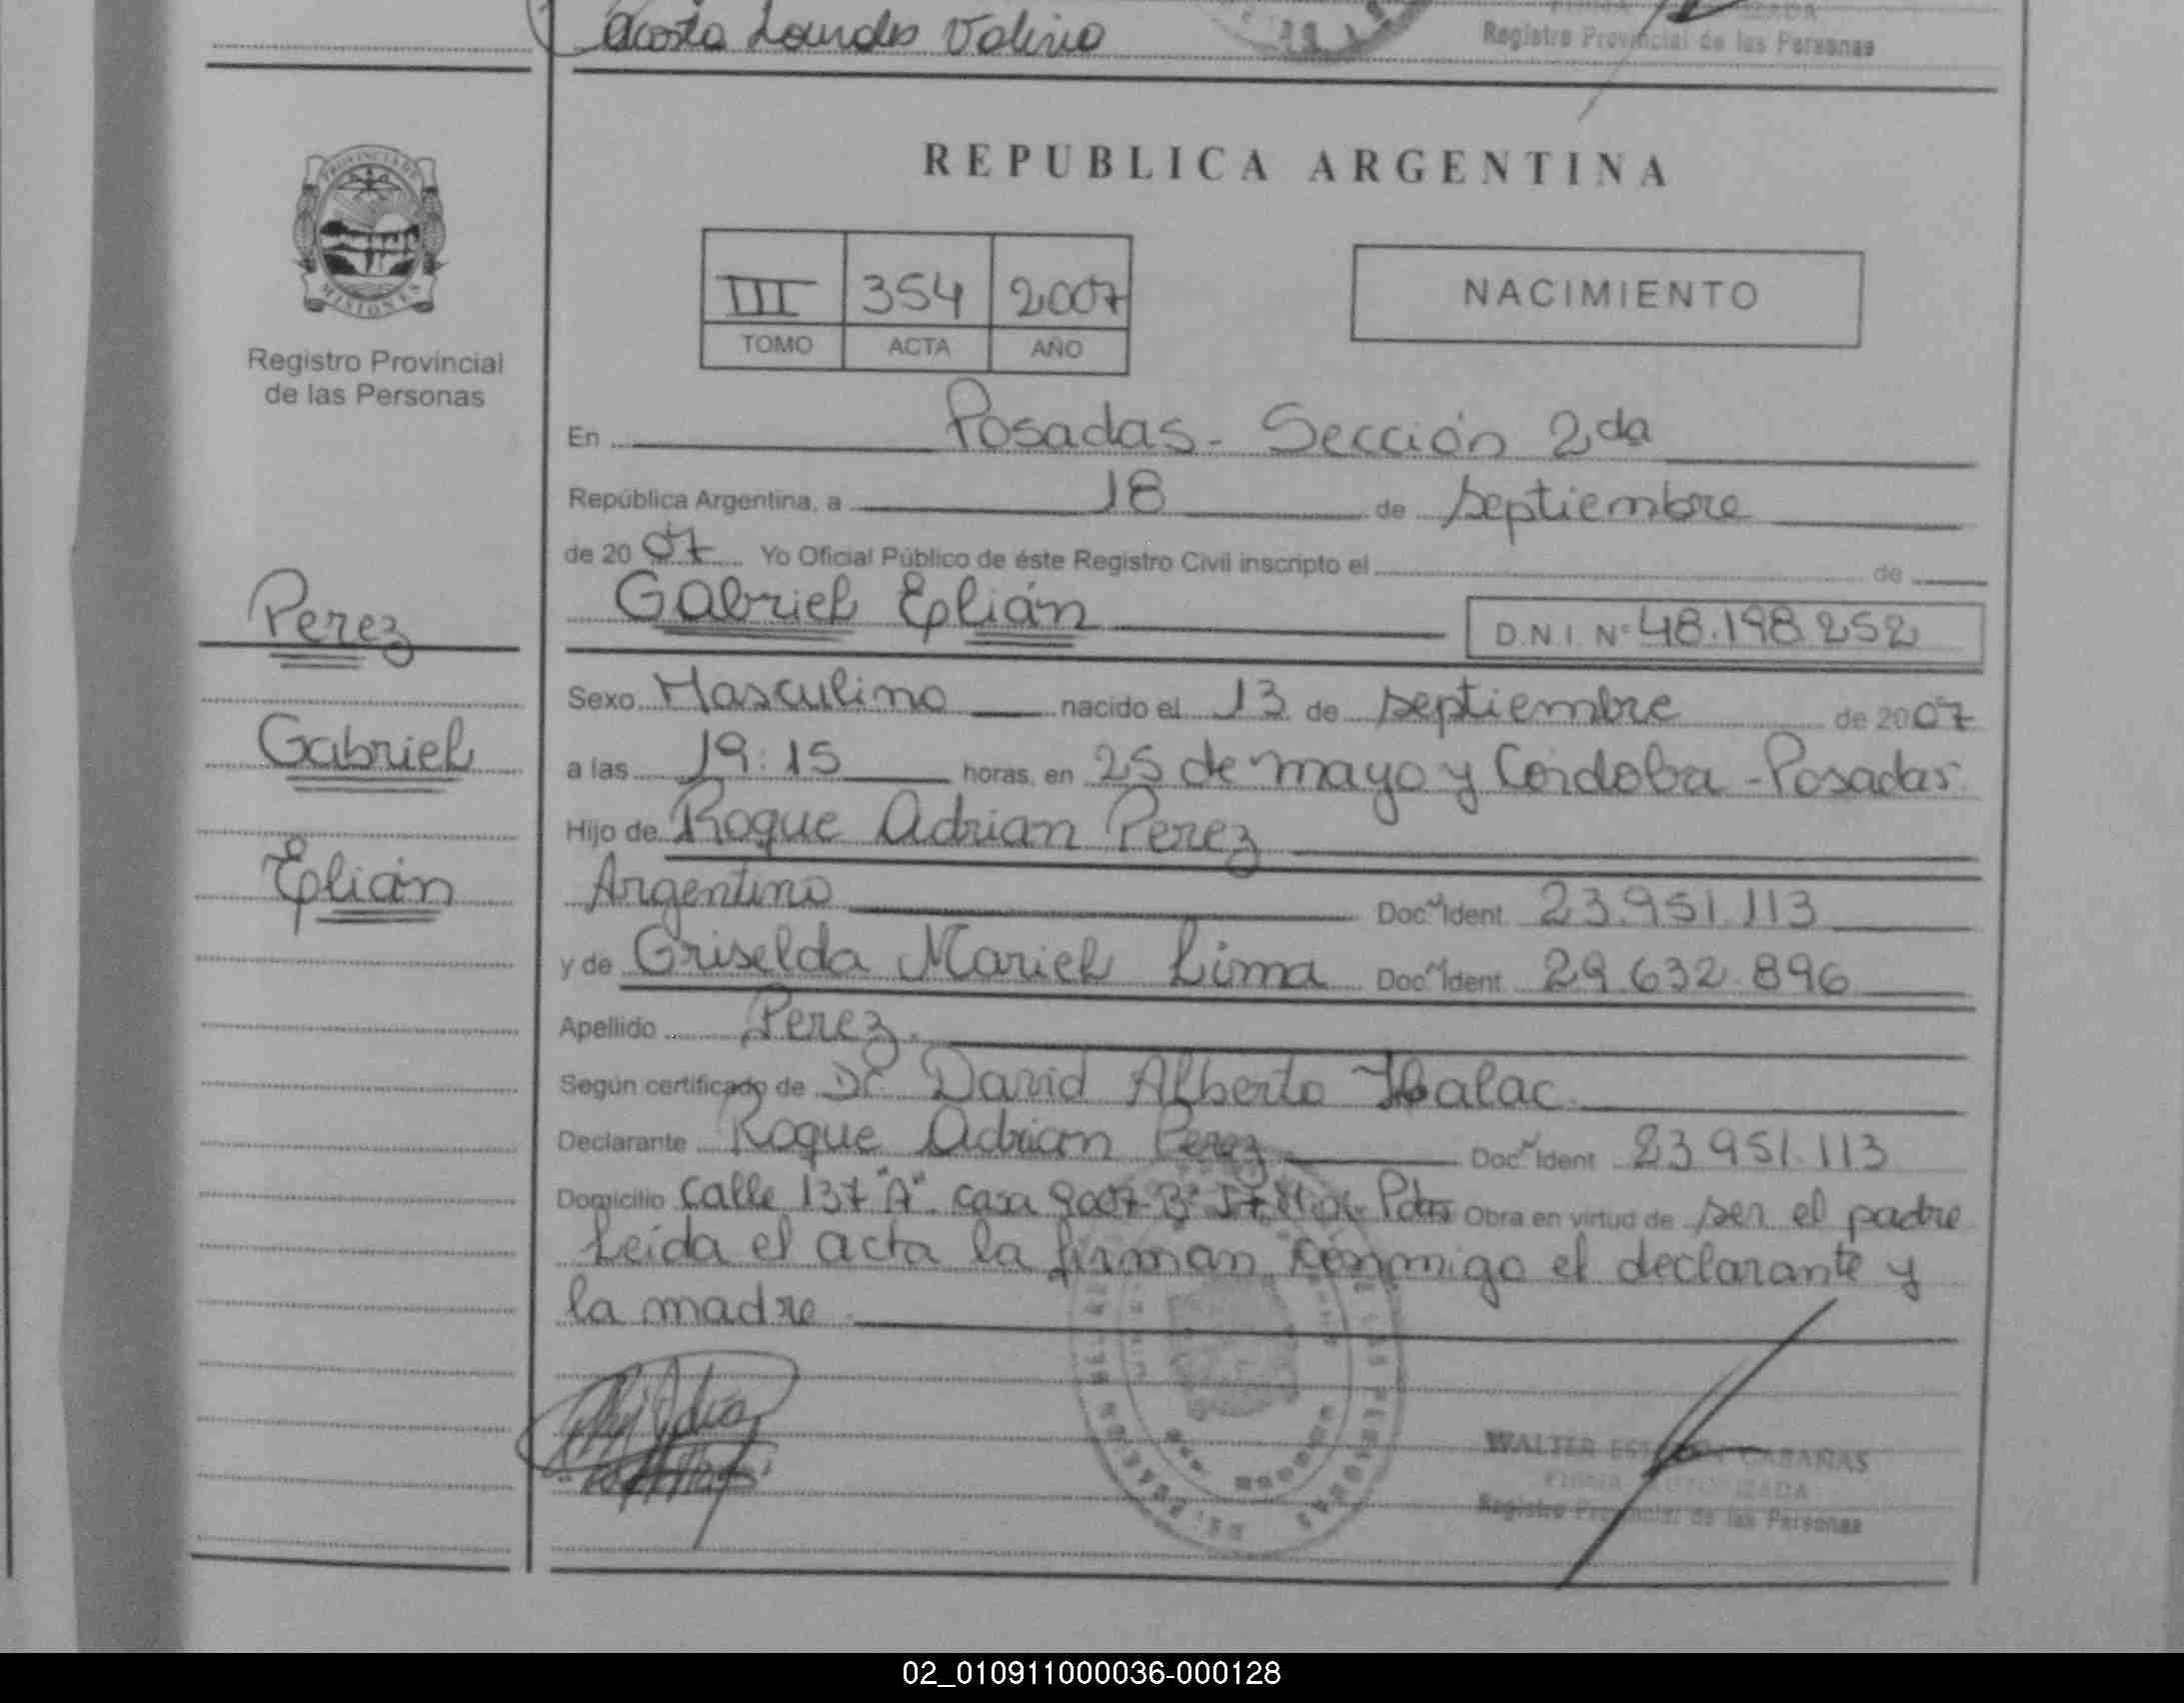 Acosta Lourdes
Registro Provincial de las Personas
REPUBLICA ARGENTINA
PROVINCIA DE
MISIONES
III 354 2007
TOMO ACTA AÑO
NACIMIENTO
Registro Provincial
de las Personas
En Posadas - Sección 2da
República Argentina, a 18 de septiembre
de 2007 Yo Oficial Público de éste Registro Civil inscripto el de
Gabriel Eplián D.N.I. Nº 48.198.252
Perez
Sexo Masculino nacido el 13 de septiembre de 2007
Gabriel
a las 19:15 horas, en 25 de mayo y Córdoba - Posadas
Hijo de Roque Adrian Perez
Eplián
Argentino Doc. Ident. 23.951.113
y de Griselda Mariel Lima Doc. Ident. 29.632.896
Apellido Perez.
Según certificado de Dr. David Alberto Halac
Declarante Roque Adrian Perez Doc. Ident. 23.951.113
Domicilio Calle 137 "A" casa Obra en virtud de ser el padre
Leída el acta la firman conmigo el declarante y
la madre
WALTER CABAÑAS
FIRMA AUTORIZADA
Registro Provincial de las Personas
02_010911000036-000128